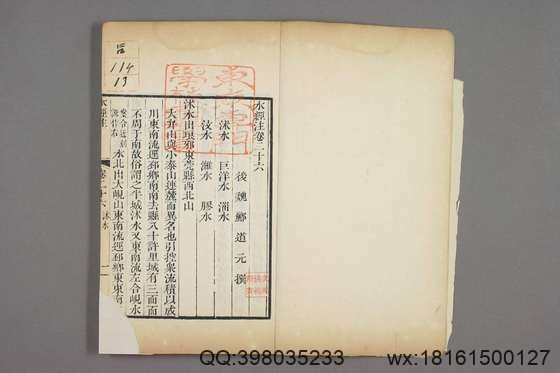 114
13
水經注卷二十六
後魏酈道元撰
沭水 巨洋水 淄水
汶水 濰水 膠水
沭水出琅邪東莞縣西北山
大弁山與小泰山連麓而異名也引控衆流積以成
川東南流逕邳鄉南南去縣八十許里城有三面而
不周于南故俗謂之半城沭水又東南流左合峴水
水北出大峴山東南流逕邳鄉東東南
水經注
卷二十六 沭水
一
QQ:398035233
wx:18161500127